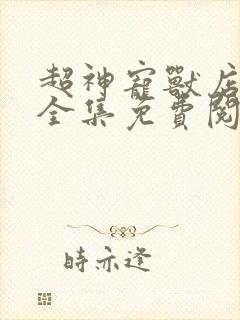 超神寵獸店
全集免費閱
時亦逢